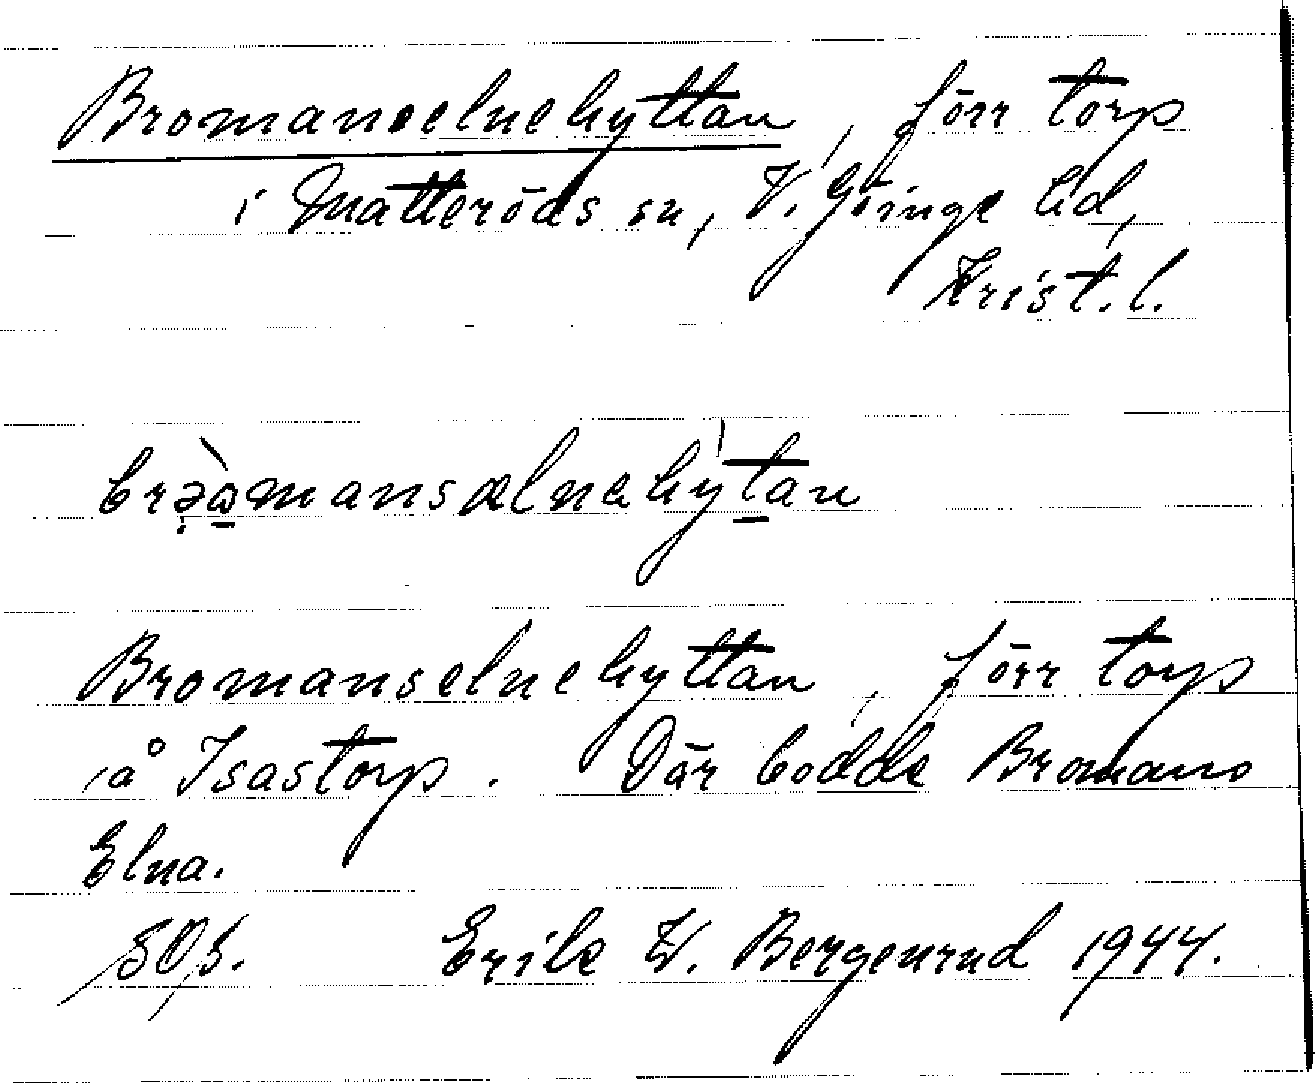 Bromanselnehyttan, förr torp
i Matteröds sn, V. Göinge hd,
Krist. l.
Bromanselnehyttan, förr torp
på Isastorp. Där bodde Bromans
Elna.
SOS. Erik W. Bergenrud 1944.